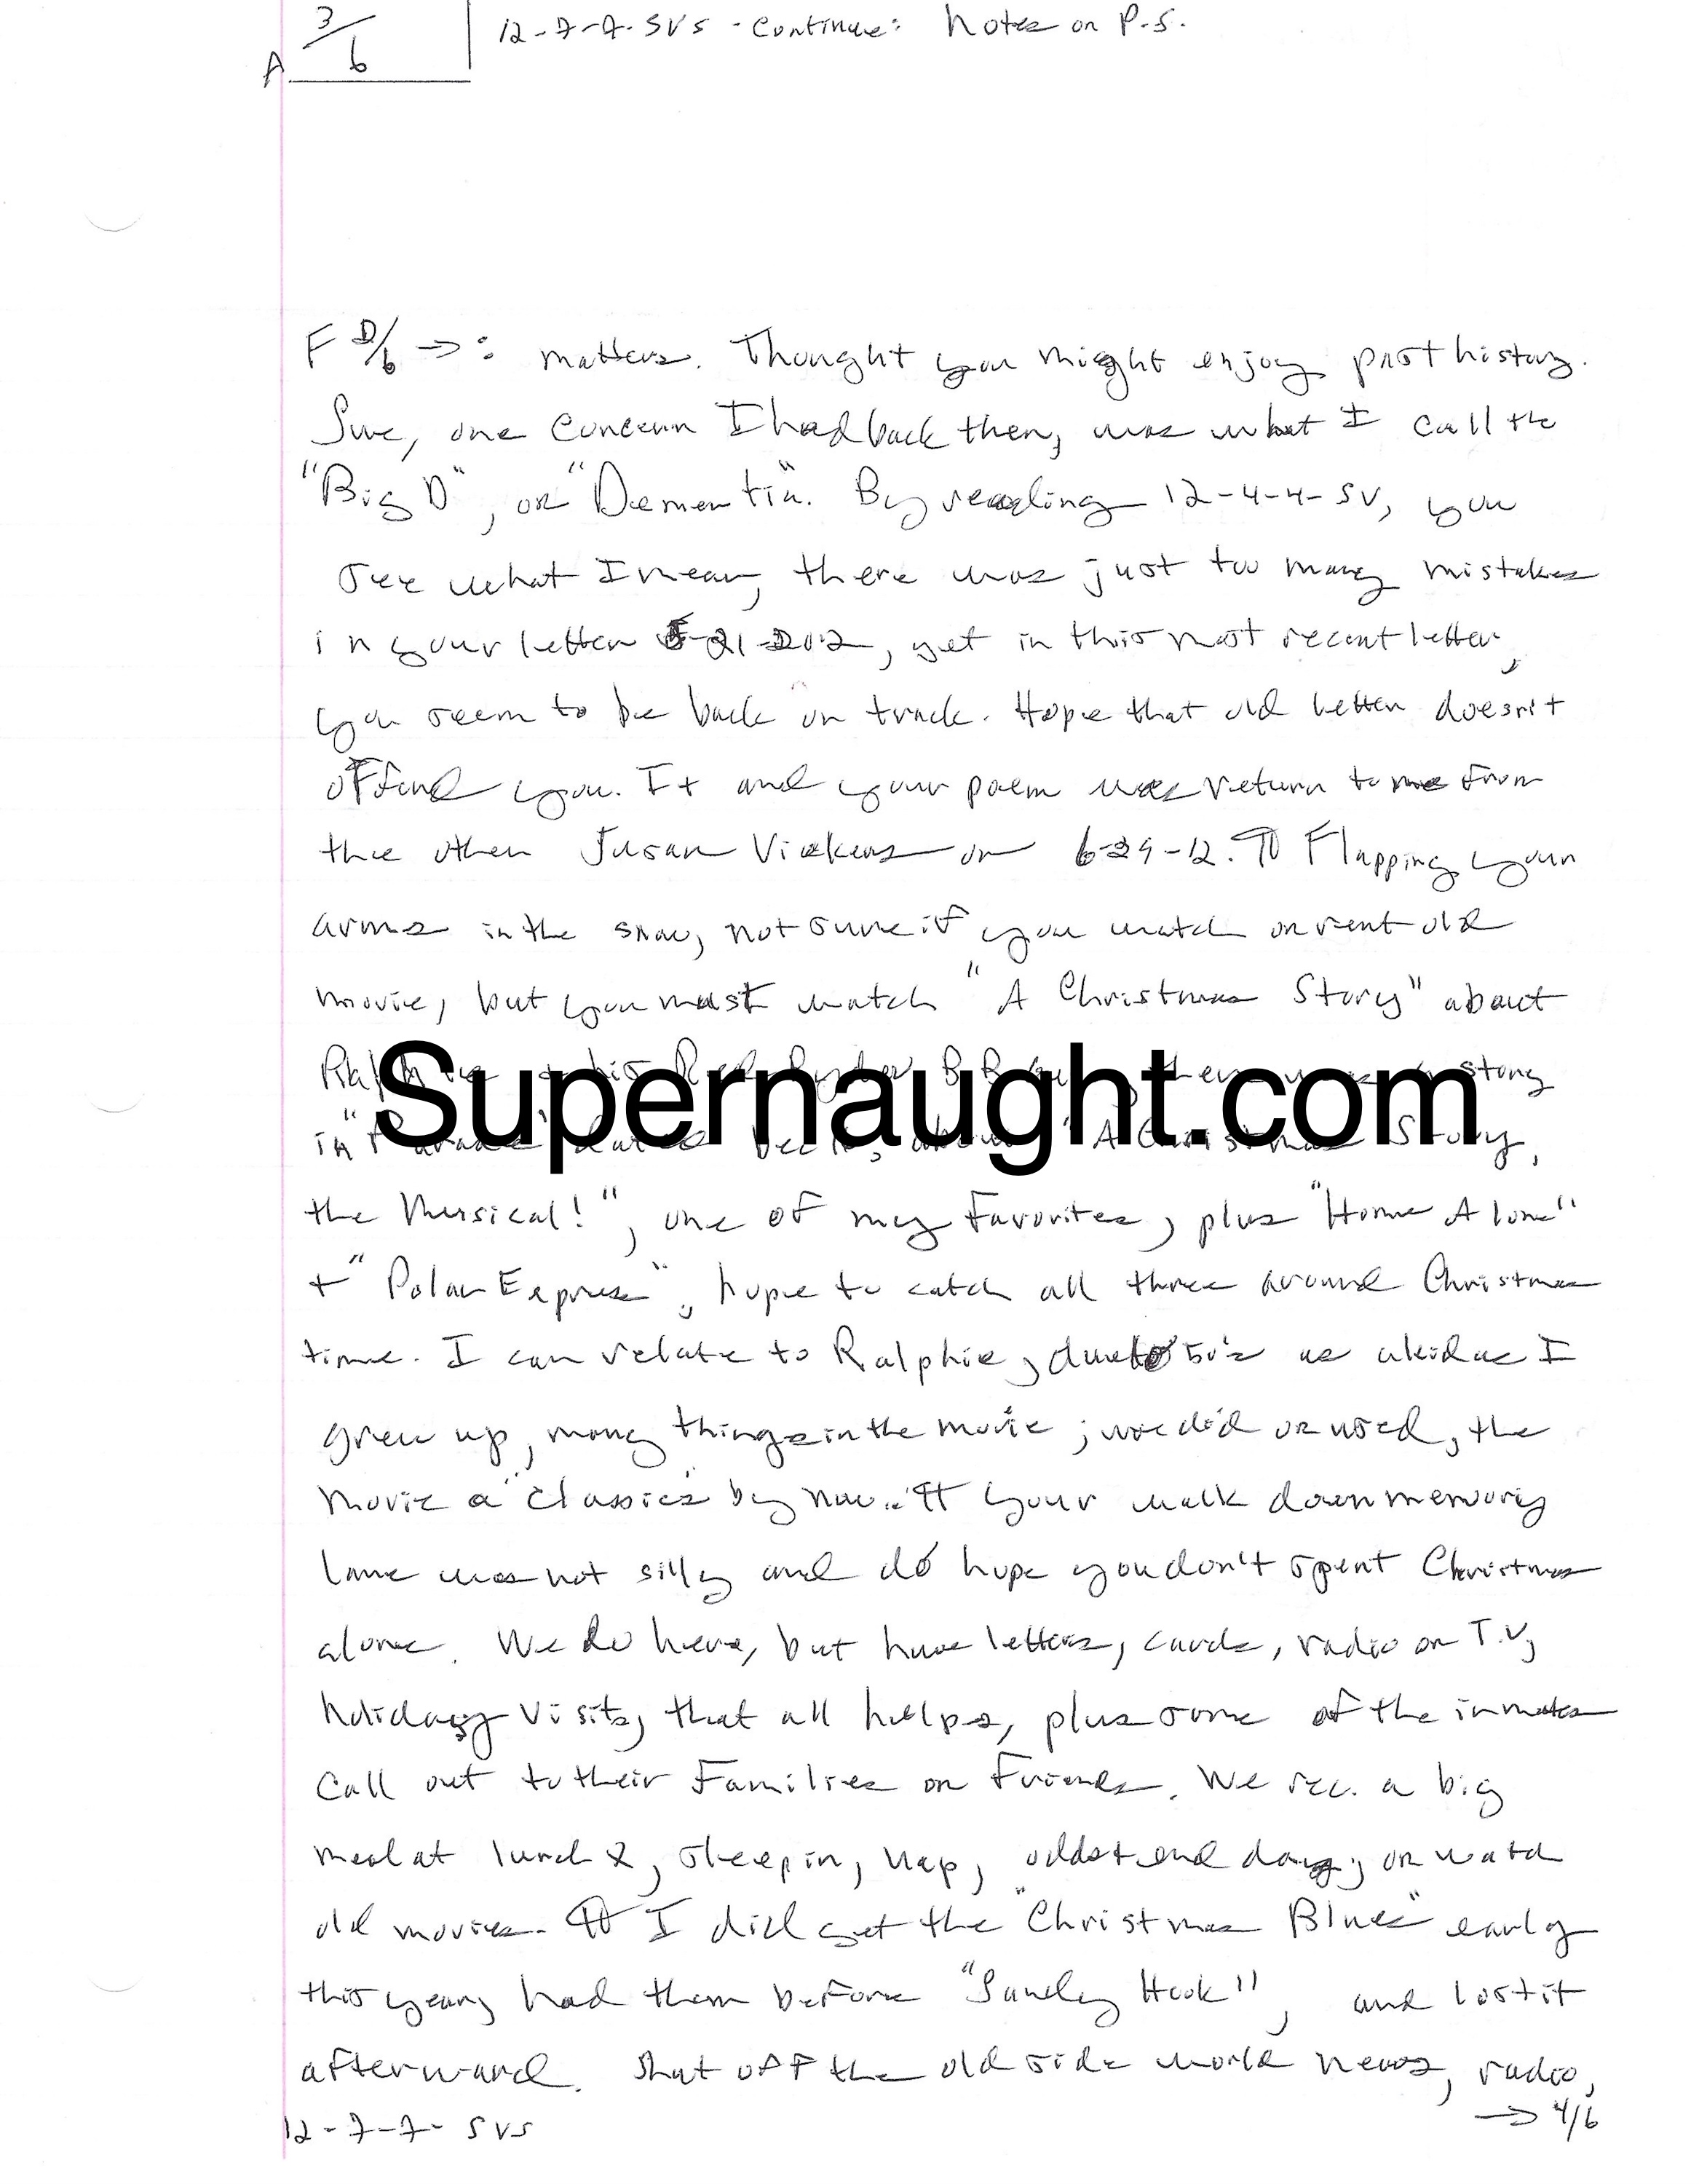 A 3/6 12-7-7-SVS - Continue: Notes on P.S.
F D/6 →: matters. Thought you might enjoy past history.
Sure, one concern I had back then, was what I call the
"Big D", or "Dementia". By reading 12-4-4-SV, you
see what I mean, there was just too many mistakes
in your letter 5-21-2012, yet in this most recent letter,
you seem to be back on track. Hope that old letter doesn't
offend you. It and your poem was return to me from
the other Susan Vickers on 6-29-12. ¶ Flapping your
arms in the snow, not sure if you watch or rent old
movie, but you must watch "A Christmas Story" about
Ralphie + his Red Ryder B B gun, there was a story
in "Parade" dated Dec. about "A Christmas Story,
the Musical!", one of my favorites, plus "Home Alone"
+ "Polar Express", hope to catch all three around Christmas
time. I can relate to Ralphie, due to 50's as a kid as I
grew up, many things in the movie; we did or used, the
movie a "classics" by now. ¶ Your walk down memory
lane was not silly and do hope you don't spent Christmas
alone. We do here, but have letters, cards, radio or T.V,
holiday visits, that all helps, plus some of the inmates
call out to their families or friends. We rec. a big
meal at lunch, sleep in, nap, odds + end day; or watch
old movies. ¶ I did get the "Christmas Blues" early
this year, had them before "Sandy Hook", and lost it
afterward. Shut off the old side world news, radio,
12-7-7- SVS → 4/6
Supernaught.com